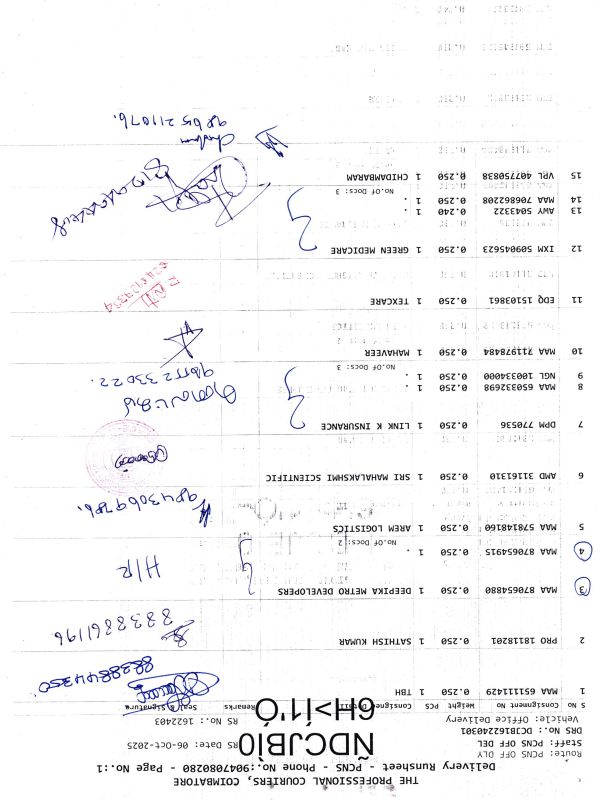 THE PROFESSIONAL COURIERS, COIMBATORE
Delivery Runsheet PCNS - Phone No.:9047080280 - Page No.:1
Route: PCNS OFF DLY
Staff: PCNS OFF DEL
DRS No.: DC781622403O1 RS Date: 06-Oct-2025
Vehicle: Office Delivery RS No.: 1622403
ÑDCJBÌ0
6H>Í1'Ó
S No Consignment No Weight PCS Consignee Remarks Seal & Signature
1 MAA 651111429 0.250 1 TBH
8838844350
2 PRO 18118201 0.250 1 SATHISH KUMAR
8838861196
3 MAA 870654880 0.250 1 DEEPIKA METRO DEVELOPERS
H/R
4 MAA 870654915 0.250 1 .
No.Of Docs: 2
5 MAA 578148160 0.250 1 AREM LOGISTICS
9843069786.
6 AMD 31161310 0.250 1 SRI MAHALAKSHMI SCIENTIFIC
7 DPM 770536 0.250 1 LINK K INSURANCE
8 MAA 650332698 0.250 1 .
9 NGL 100334000 0.250 1 .
No.Of Docs: 3
10 MAA 711978484 0.250 1 MAHAVEER
11 EDQ 15103861 0.250 1 TEXCARE
12 IXM 509045623 0.250 1 GREEN MEDICARE
13 AWY 5043322 0.240 1 .
14 MAA 706862208 0.250 1 .
No.Of Docs: 3
15 VPL 407750838 0.250 1 CHIDAMBARAM
9865211076.